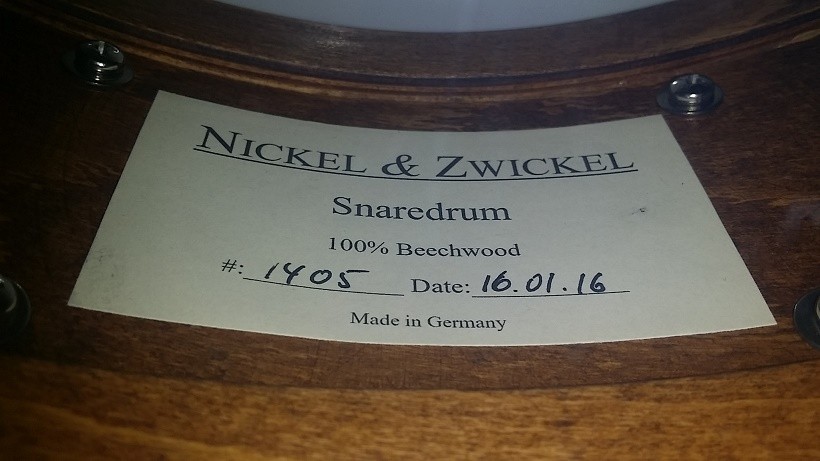 NICKEL & ZWICKEL
Snaredrum
100% Beechwood
#: 1405 Date: 16.01.16
Made in Germany